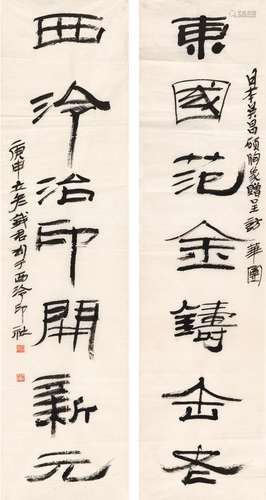 東國范金鑄缶老
日本吴昌碩胸象贈呈訪華團
西泠治印開新元
庚申 錢君匋于西泠印社